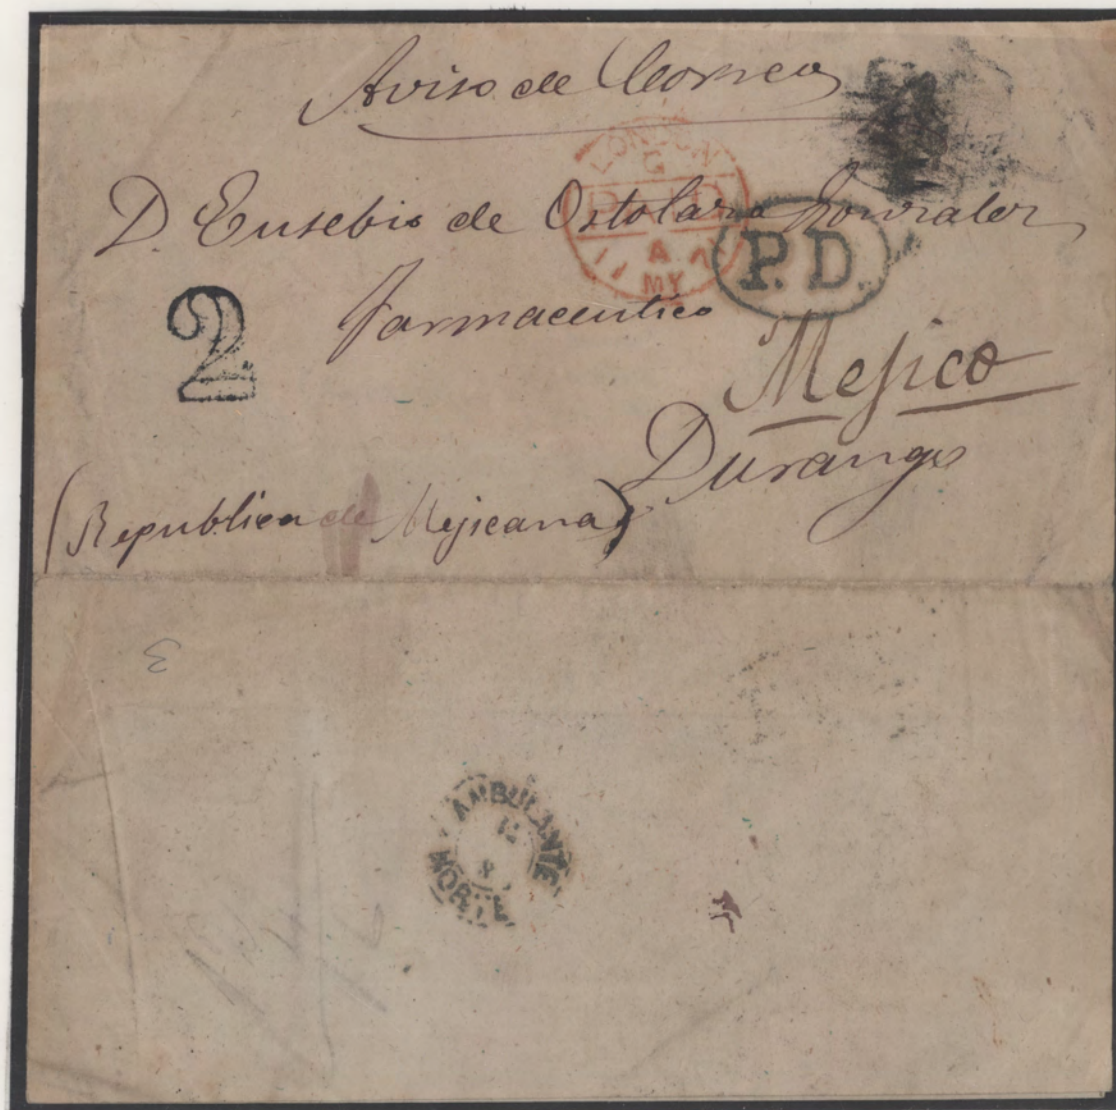 Aviso de Correo
LONDON
G
PAID
A
11 MY 7
D. Eusebio de Ostolaza Gonzalez
P.D.
2
Farmaceutico
Mejico
Durango
(Republica de Mejicana)
3
AMBULANTE
NORTE